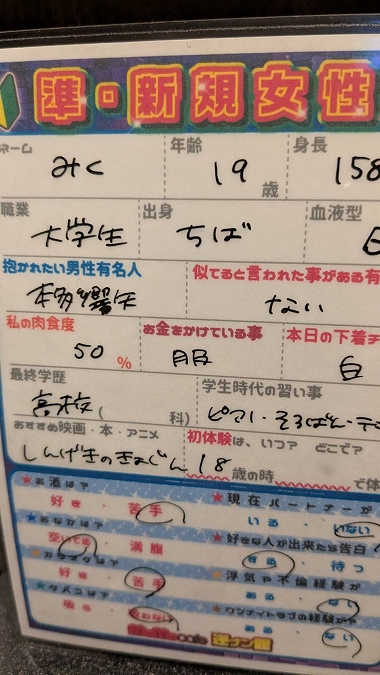 準・新規女性
ネーム 年齢 身長
みく 19歳 158
職業 出身 血液型
大学生 ちば
抱かれたい男性有名人 似てると言われた事がある有
ない
私の肉食度 お金をかけている事 本日の下着チ
50% 服 白
最終学歴 学生時代の習い事
高校( 科) ピアノ・そろばん・テ
おすすめ映画・本・アニメ 初体験は、いつ? どこで?
しんげきのきょじん 18歳の時 で体
★お酒は? ★現在パートナーが
好き・苦手 いる・いない
★おなかは? ★好きな人が出来たら告白
空いてる・満腹 する・待つ
★カラオケは? ★浮気や不倫経験が
好き・苦手 ある・ない
★タバコは? ★ワンナイトラブの経験が
吸う・吸わない ある・ない